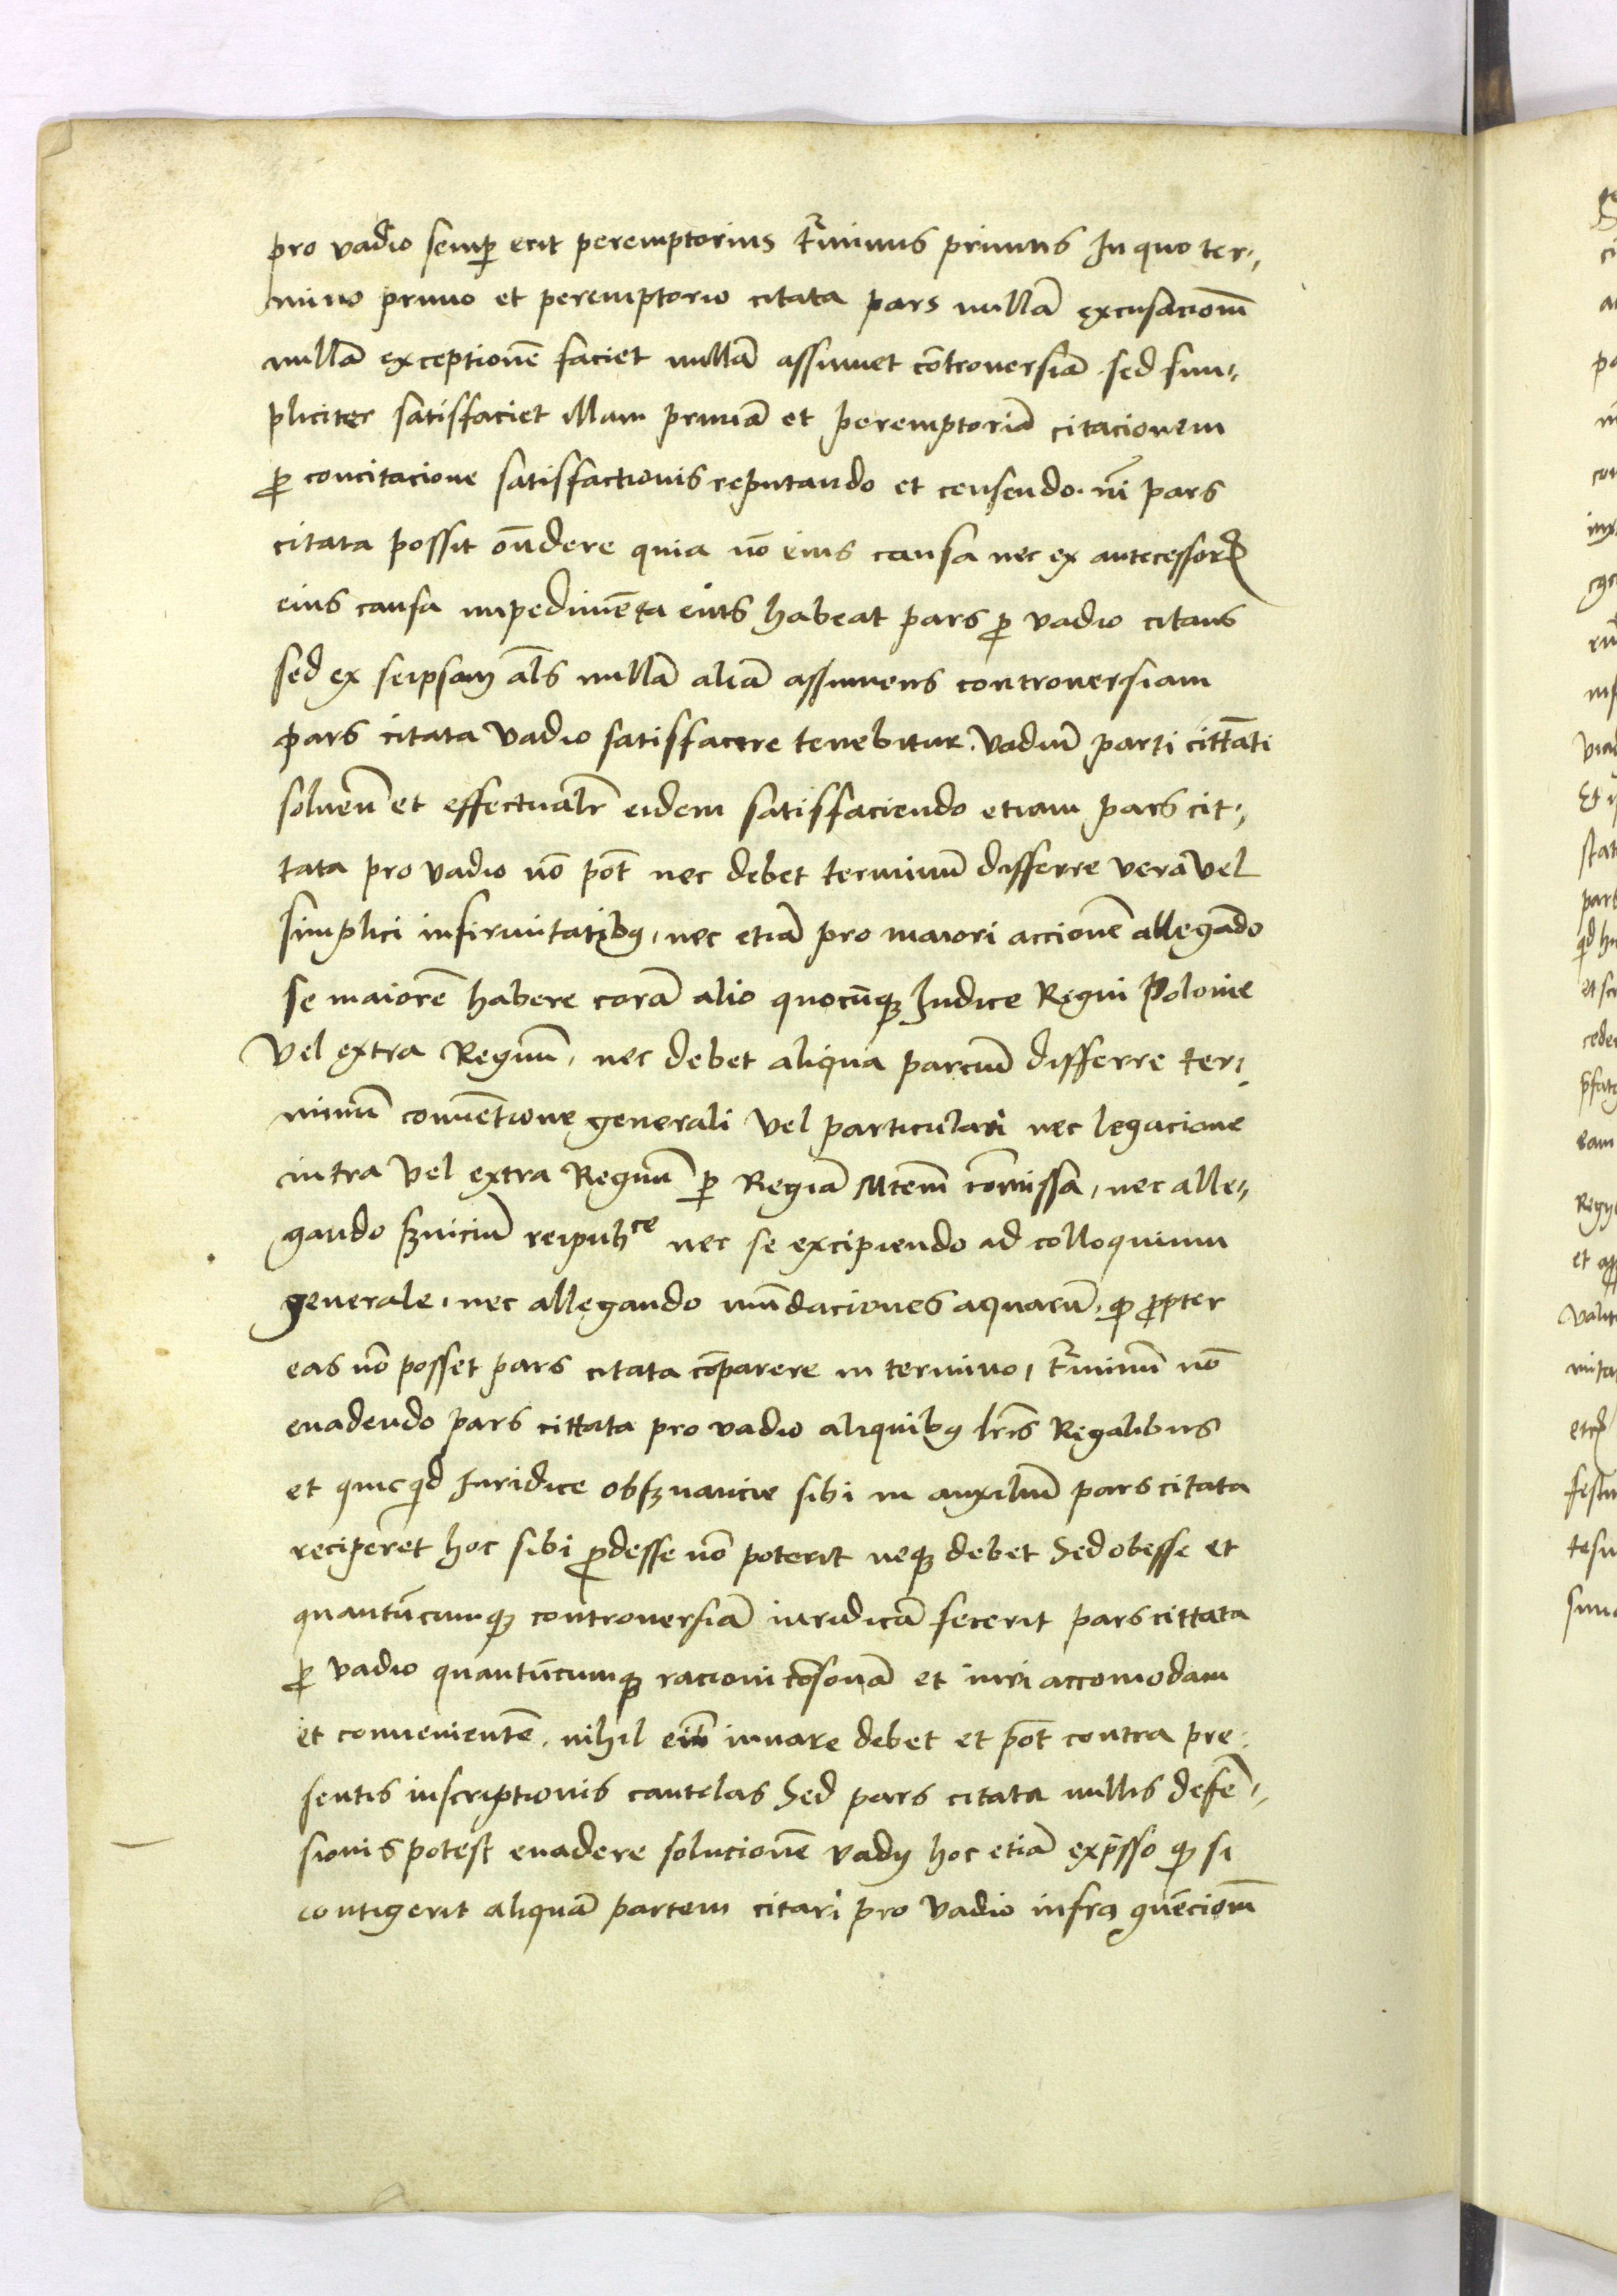 pro vadio semp̲ erit peremptorius t̃minus primus In quo ter⸗
mino primo et peremptorio citata pars nullā excusacionē
nullā exceptionē faciet nullā assumet cōtroversiā . sed sim⸗
pliciter satisfaciet illam primā et peremptoriā citacionem
ꝓ concitacione satisfactionis reputando et censendo . nī pars
citata possit oñdere quia nō eius causa nec ex antecessorꝝ
eius causa impedimēta eius habeat pars ꝓ vadio citans
sed ex seipsam als̄ nullā aliā assumens controversiam
pars citata vadio satisfacere tenebitur . vadiū parti cittāti
solueñ et effectualr̄ eidem satisfaciendo etiam pars cit⸗
tata pro vadio nō pōt nec debet terminū differre vera vel
simplici infirmitatibꝰ , nec etiā pro maiori accionē allegādo
se maiorē habere corā alio quocūqꝫ Iudice Regni Polonie
Vel extra Regnū , nec debet aliqua parcium differre ter⸗
minū conuētione generali vel particulari nec legacione
intra vel extra Regnū ꝑ Regiā Mtem̄ com̄issa , nec alle⸗
gando ẜuiciū reipubᶜᵉ nec se excipiendo ad colloquium
generale , nec allegando inūdaciones aquarū , ꝙ ꝓpter
eas nō posset pars citata cōparere in termino , t̃minū nō
euadendo pars cittata pro vadio aliquibꝰ lr̄is Regalibus
et quicqd̄ Iuridice obẜuancie sibi in auxiliū pars citata
reciperet hoc sibi ꝓdesse nō poterit neqꝫ debet Sed obesse et
quantūcumqꝫ controuersiā iuridicā fecerit pars cittata
ꝓ vadio quantūcumqꝫ racioni cōsonā et iuri accomodam
et conuenientē . nihil ein̄ iuuare debet et pōt contra pre⸗
sentis inscriptionis cautelas Sed pars citata nullis defē⸗
sionis potest euadere solucionē vadij hoc etiā exp̄sso ꝙ si
contigerit aliquā partem citari pro vadio infra